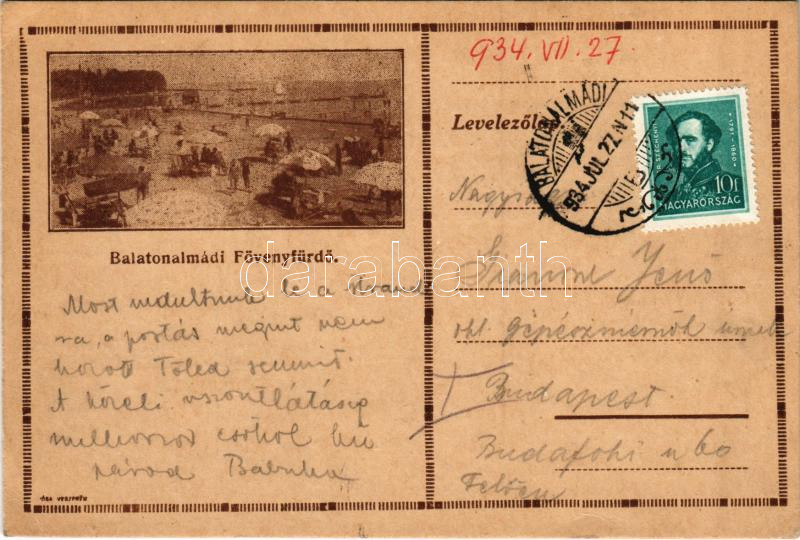 934. VII. 27.
Levelezőlap
BALATONALMÁDI
934.JUL.27.N11
SZÉCHENYI
1791-1860
10f
MAGYARORSZÁG
Nagys
Balatonalmádi Fövenyfürdő.
darabanth
Jenő
Most indultunk le a strand
ra, a postás megint nem
hozott Tőled semmit.
A közeli viszontlátásig
milliószor csókol hű
párod Babuka
okl. gépészmérnök úrnak
Budapest.
Budafoki u 60
VESZPRÉM